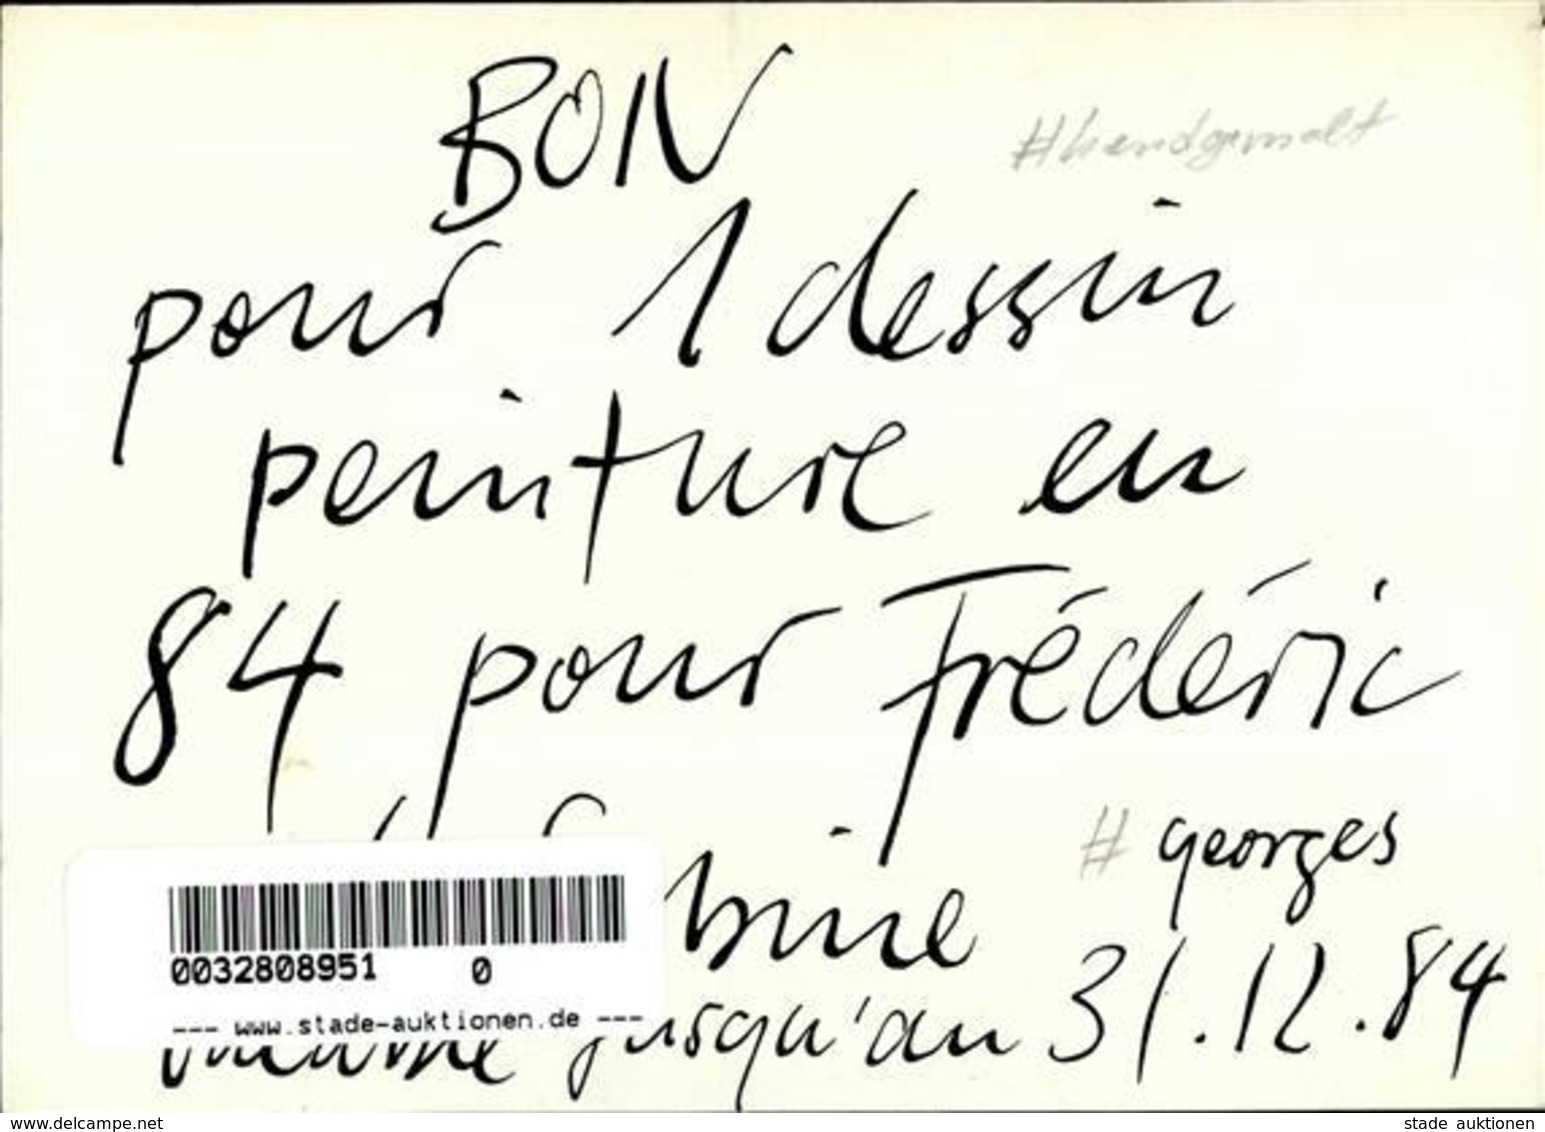 BON
#handgemalt
pour 1 dessin
peinture en
84 pour Frédéric
# georges
0032808951 0
--- www.stade-auktionen.de ---
jusqu'au 31.12.84
www.delcampe.net
stade auktionen